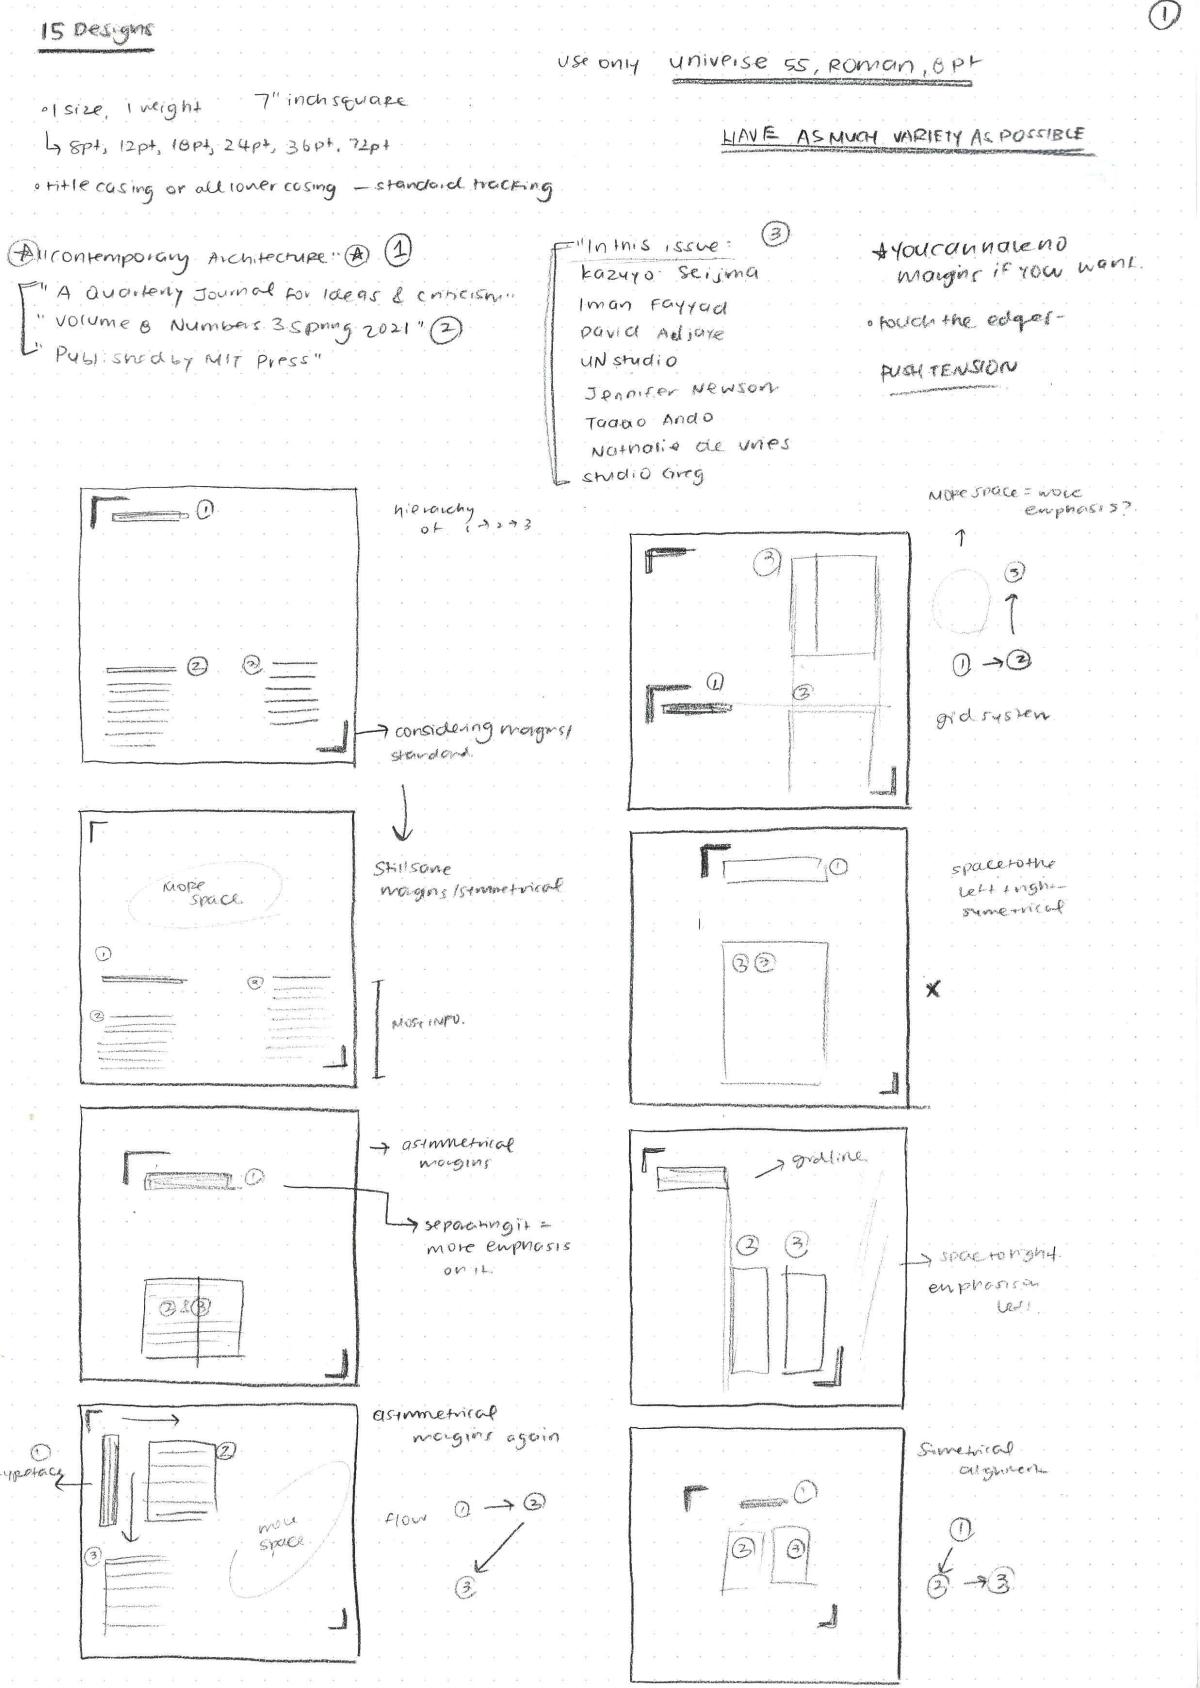 1
15 Designs
use only universe 55, Roman, 8pt
•1 size, 1 weight 7" inch square
↳ 8pt, 12pt, 18pt, 24pt, 36pt, 72pt
HAVE AS MUCH VARIETY AS POSSIBLE
•title casing or all lower casing — standard tracking
"Contemporary Architecture" 1
"A Quarterly Journal for Ideas & criticism"
"Volume 8 Numbers 3 Spring 2021" 2
"Published by MIT Press"
"In this issue: 3
Kazuyo Seijma
Iman Fayyad
David Adjaye
UNstudio
Jennifer Newsom
Tadao Ando
Nathalie de Vries
Studio Greg
★you can have no
margins if you want.
• touch the edges-
PUSH TENSION
1
hierarchy
of 1→2→3
2 3
→ considering margins/
standard.
More space = more
emphasis?
↑
3
3
↑
1 → 2
1
3
grid system
more
space
Still same
margins/symmetrical
1
2
3
MOST INFO.
1
2 3
space to the
left + right-
symetrical
x
1
2 & 3
→ asymmetrical
margins
→ separating it =
more emphasis
on it.
→ gridline
2 3
→ space to right.
emphasis on
left.
→
1
typeface
2
3
more
space
asymmetrical
margins again
flow 1 → 2
3
1
2 3
Simetrical
alignment
1
2 → 3